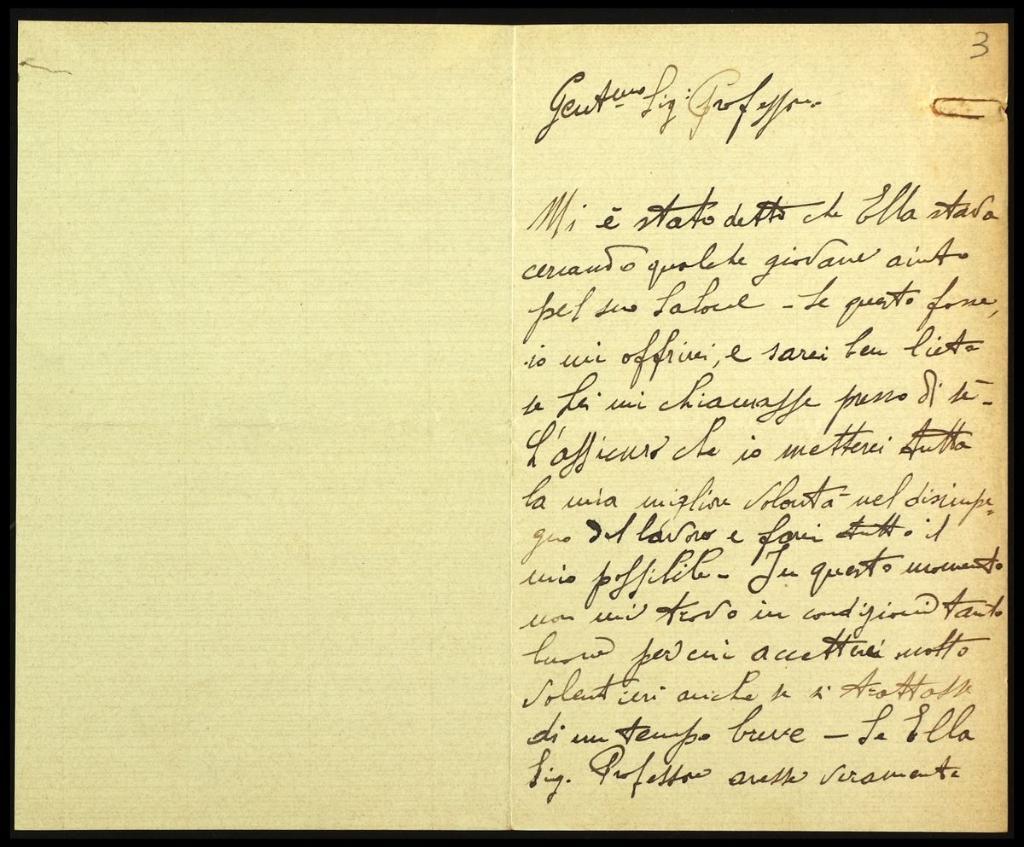 3
Gent.mo Sig: Professore
Mi è stato detto che Ella stava
cercando qualche giovane aiuto
pel suo Salone - Se questo fosse,
io mi offrirei, e sarei ben lieto
se Lei mi chiamasse presso di sè -
L'assicuro che io metterei tutta
la mia migliore volontà nel disimpe-
gno del lavoro e farei tutto il
mio possibile - In questo momento
non mi trovo in condizioni tanto
buone per cui accetterei molto
volentieri anche se si trattasse
di un tempo breve - Se Ella
Sig. Professore avesse veramente